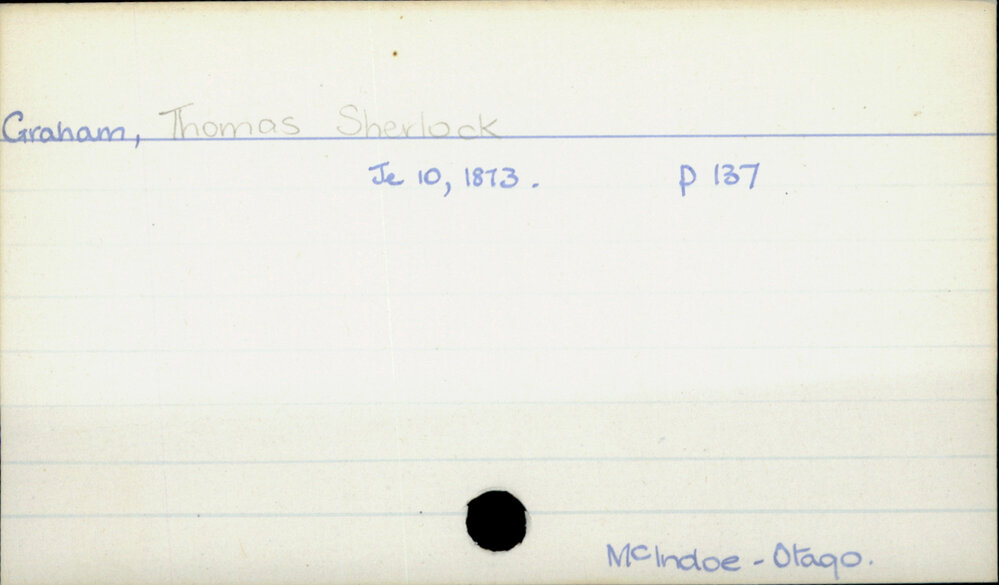 Graham, Thomas Sherlock
Je 10, 1873. p 137
McIndoe - Otago.